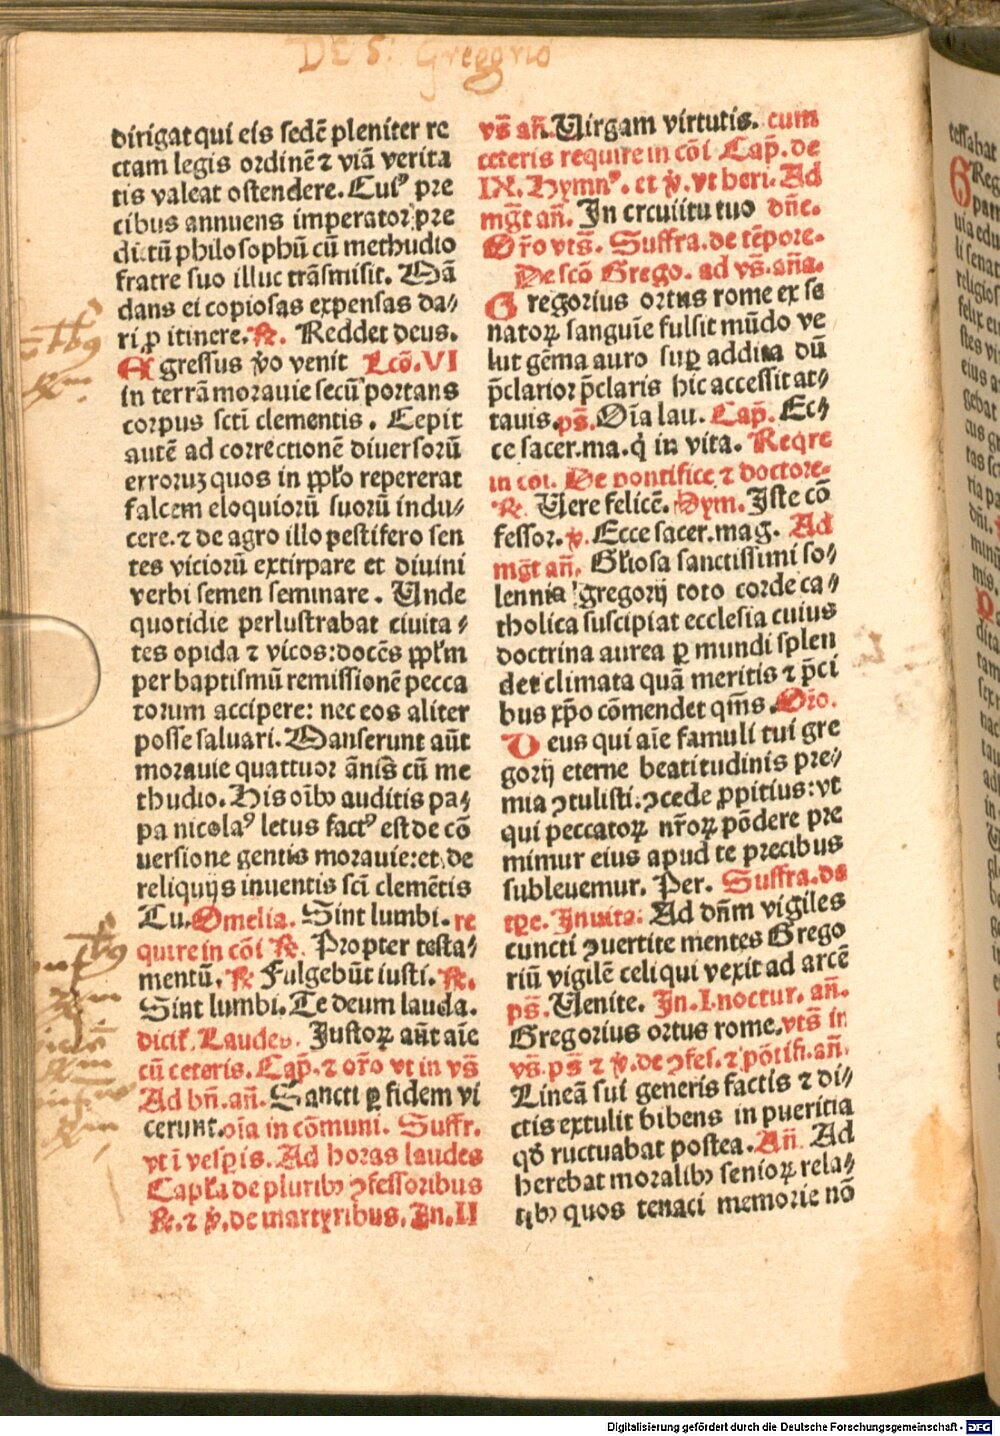 DE S. Gregorio
dirigat qui eis fedē pleniter re
ctam legis ordinē ⁊ viā verita
tis valeat ostendere. Cuiꝰ pre
cibus annuens imperator pre
dictū philosophū cū methudio
fratre suo illuc trāsmisit. Mā
dans ei copiosas expensas da⸗
ri ꝑ itinere. ℟. Reddet deus.
Egressus ꝟo venit Lcō. VI
in terrā morauie secū portans
corpus scti clementis. Cepit
autē ad correctionē diuersorū
erroruꝫ quos in ꝓplo repererat
falcem eloquiorū suorū indu⸗
cere. ⁊ de agro illo pestifero sen
tes viciorū extirpare et diuini
verbi semen seminare. Unde
quotidie perlustrabat ciuita⸗
tes opida ⁊ vicos: docēs pplm
per baptismū remissionē pecca
torum accipere: nec eos aliter
posse saluari. Manserunt aūt
morauie quattuor ānis cū me
thudio. His oībꝰ auditis pa⸗
pa nicolaꝰ letus factꝰ est de cō
uersione gentis morauie: et de
reliquijs inuentis sci clemētis
Tu. Omelia. Sint lumbi. re
quire in cōi ℟. Propter testa⸗
mentū. ℟. Fulgebūt iusti. ℟.
Sint lumbi. Te deum lauda.
dicit̄. Laudes. Justoꝝ aūt aīe
cū ceteris. Cap̄. ⁊ or̄o vt in vs̄
Ad bn̄. an̄. Sancti ꝑ fidem vi
cerunt. oīa in cōmuni. Suffr.
vt ī vesp̄is. Ad horas laudes
Capl̄a de pluribꝰ ꝯfessoribus
℟. ⁊ ℣. de martyribus. In. II
vs̄ an̄. Uirgam virtutis. cum
ceteris require in cōi Cap̄. de
IX. Hymnꝰ. et ℣. vt heri. Ad
mgt̄ an̄. In crcuiitu tuo dn̄e.
Or̄o vts̄. Suffra. de tēpore.
De scō Grego. ad vs̄. an̄a.
Gregorius ortus rome ex se
natoꝝ sanguīe fulsit mūdo ve
lut gēma auro suꝑ addita dū
p̄clarior p̄claris hic accessit at⸗
tauis. ps̄. Oīa lau. Cap̄. Ec⸗
ce sacer. ma. q̇ in vita. Reqre
in coi. De pontifice ⁊ doctore.
℟. Uere felicē. Hym. Iste cō
fessor. ℣. Ecce sacer. mag. Ad
mgt̄ an̄. Gl̄iosa sanctissimi so⸗
lennia gregorij toto corde ca⸗
tholica suscipiat ecclesia cuius
doctrina aurea ꝑ mundi splen
det climata quā meritis ⁊ p̄ci
bus xp̄o cōmendet qm̄s. Or̄o.
Deus qui aīe famuli tui gre
gorij eterne beatitudinis pre⸗
mia ꝯtulisti. ꝯcede ꝓpitius: vt
qui peccatoꝝ nr̄oꝝ pōdere pre
mimur eius apud te precibus
subleuemur. Per. Suffra. de
tp̄e. Inuita. Ad dn̄m vigiles
cuncti ꝯuertite mentes Grego
riū vigilē celi qui vexit ad arcē
ps̄. Uenite. In. I. noctur. an̄.
Gregorius ortus rome. vts̄ in
vs̄. ps̄ ⁊ ℣. de ꝯfes. ⁊ pōtifi. an̄.
Lineā sui generis factis ⁊ di⸗
ctis extulit bibens in pueritia
qd̄ ructuabat postea. An̄. Ad
herebat moralibꝰ senioꝝ rela⸗
tibꝰ quos tenaci memorie nō
Digitalisierung gefördert durch die Deutsche Forschungsgemeinschaft - DFG